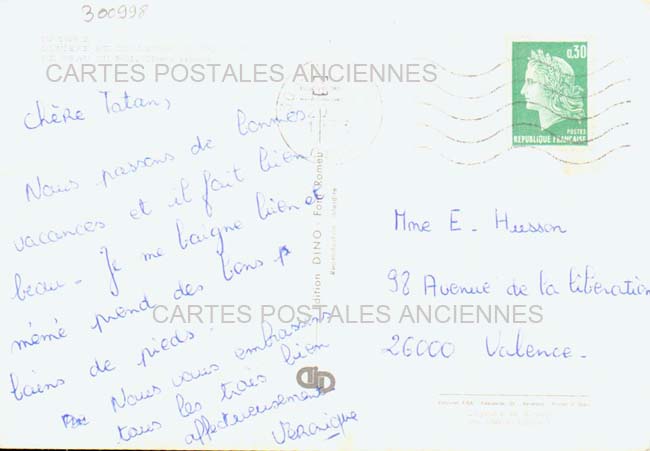 300998
CARTES POSTALES ANCIENNES
Chère Tatan,
Nous passons de bonnes
vacances et il fait bien
beau - Je me baigne bien et
mémé prend des bons
bains de pieds.
Nous vous embrassons
tous les trois bien
affectueusement
Véronique
Edition DINO - Font-Romeu
Reproduction interdite
0,30
POSTES
REPUBLIQUE FRANÇAISE
Mme E. Husson
98 Avenue de la libération
26000 Valence.
CARTES POSTALES ANCIENNES